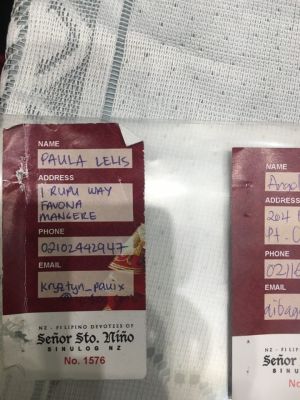 NAME
PAULA LELIS
ADDRESS
1 RUPU WAY
FAVONA
MANGERE
PHONE
02102442947
EMAIL
NZ - FILIPINO DEVOTEES OF
Señor Sto. Niño
SINULOG NZ
No. 1576
NAME
ADDRESS
264
Pt.
PHONE
EMAIL
NZ - FILIP
Señor
SIN